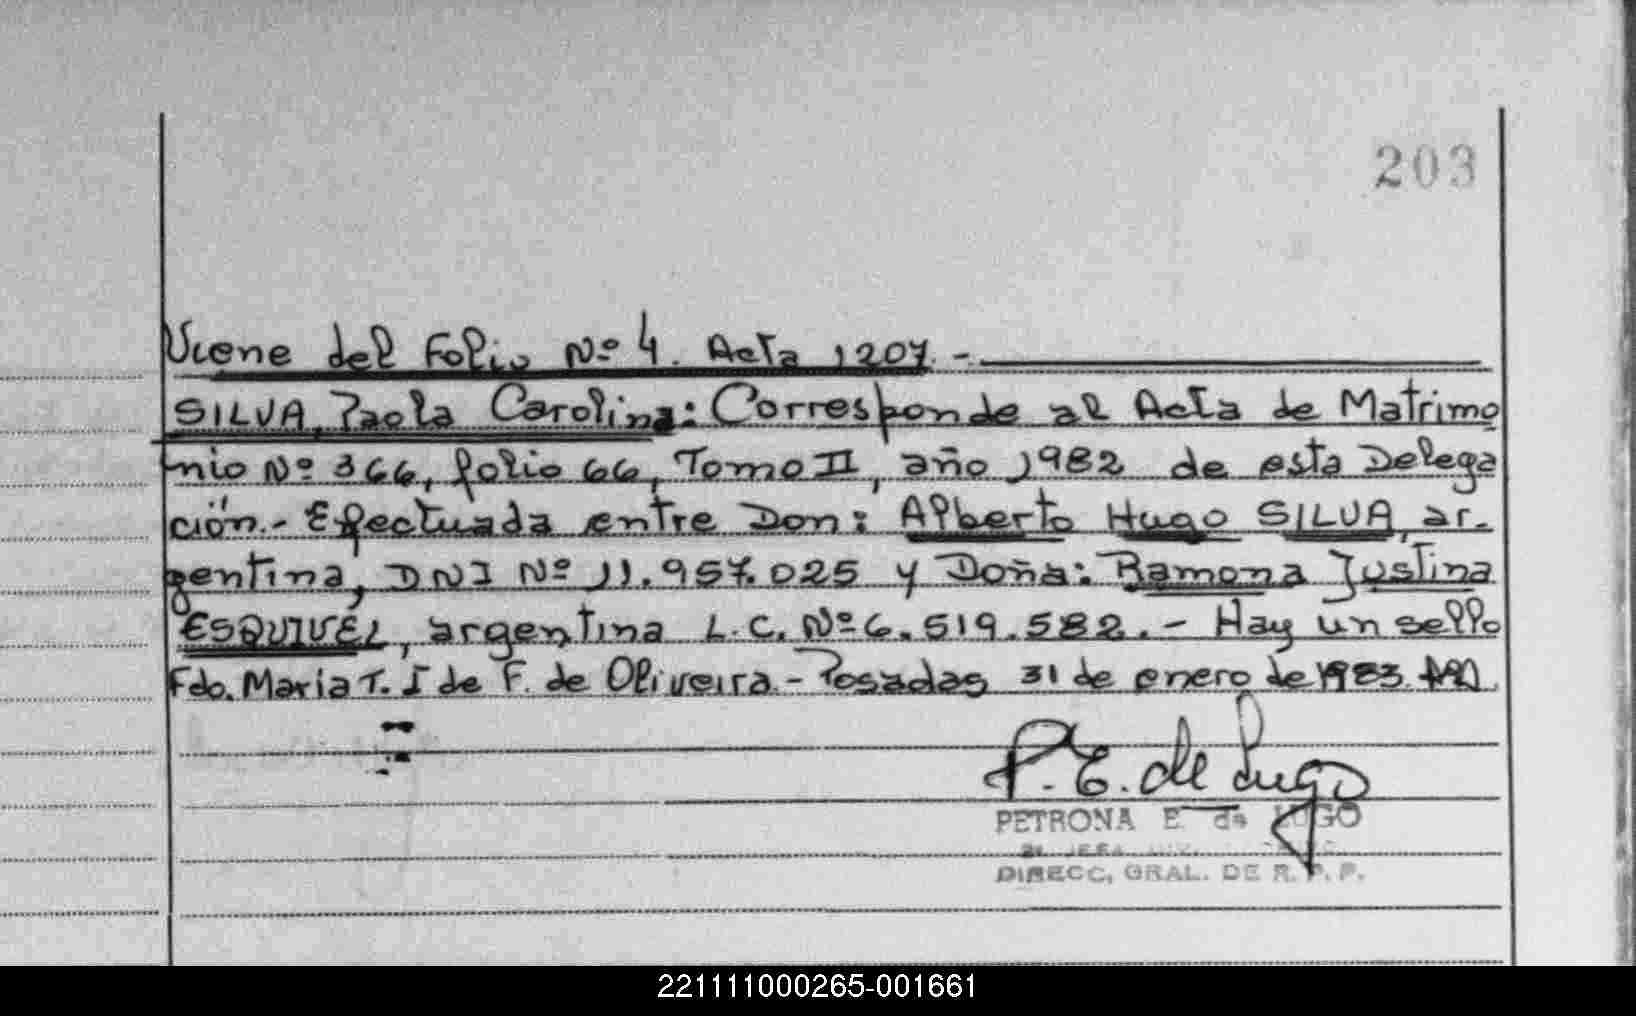 203
Viene del Folio Nº 4. Acta 1207.-
SILVA, Paola Carolina: Corresponde al Acta de Matrimo
nio Nº 366, folio 66, Tomo II, año 1982 de esta Delega
ción.- Efectuada entre Don: Alberto Hugo SILVA, ar-
gentina, DNI Nº 11.957.025 y Doña: Ramona Justina
ESQUIVEL, argentina L.C. Nº 6.519.582.- Hay un sello
Fdo. Maria T. I de F. de Oliveira.- Posadas 31 de enero de 1983.
P. E. de Lugo
PETRONA E. de LUGO
DIRECC, GRAL. DE R. P. P.
221111000265-001661